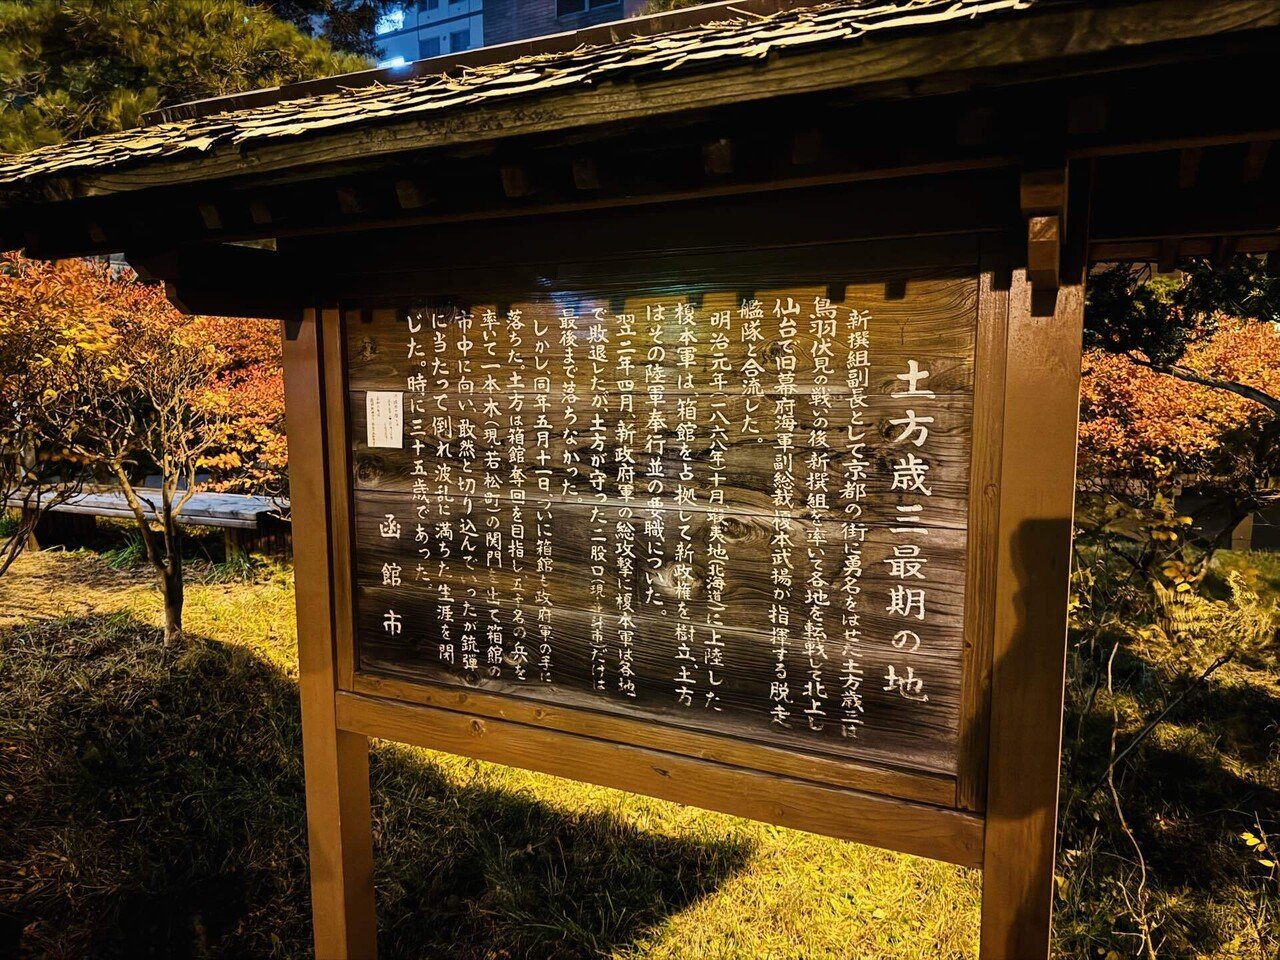 土方歳三最期の地
新撰組副長として京都の街に勇名をはせた土方歳三は
鳥羽伏見の戦いの後、新撰組を率いて各地を転戦して北上し
仙台で旧幕府海軍副総裁榎本武揚が指揮する脱走
艦隊と合流した。
明治元年(一八六八年)十月、蝦夷地(北海道)に上陸した
榎本軍は箱館を占拠して新政権を樹立、土方
はその陸軍奉行並の要職についた。
翌二年四月、新政府軍の総攻撃に榎本軍は各地
で敗退したが、土方が守った二股口(現・斗市)だけは
最後まで落ちなかった。
しかし、同年五月十一日、ついに箱館も政府軍の手に
落ちた。土方は箱館奪回を目指し、五十名の兵を
率いて一本木(現若松町)の関門を出て箱館の
市中に向い、敢然と切り込んでいったが銃弾
に当たって倒れ波乱に満ちた生涯を閉
じた。時に三十五歳であった。
函館市